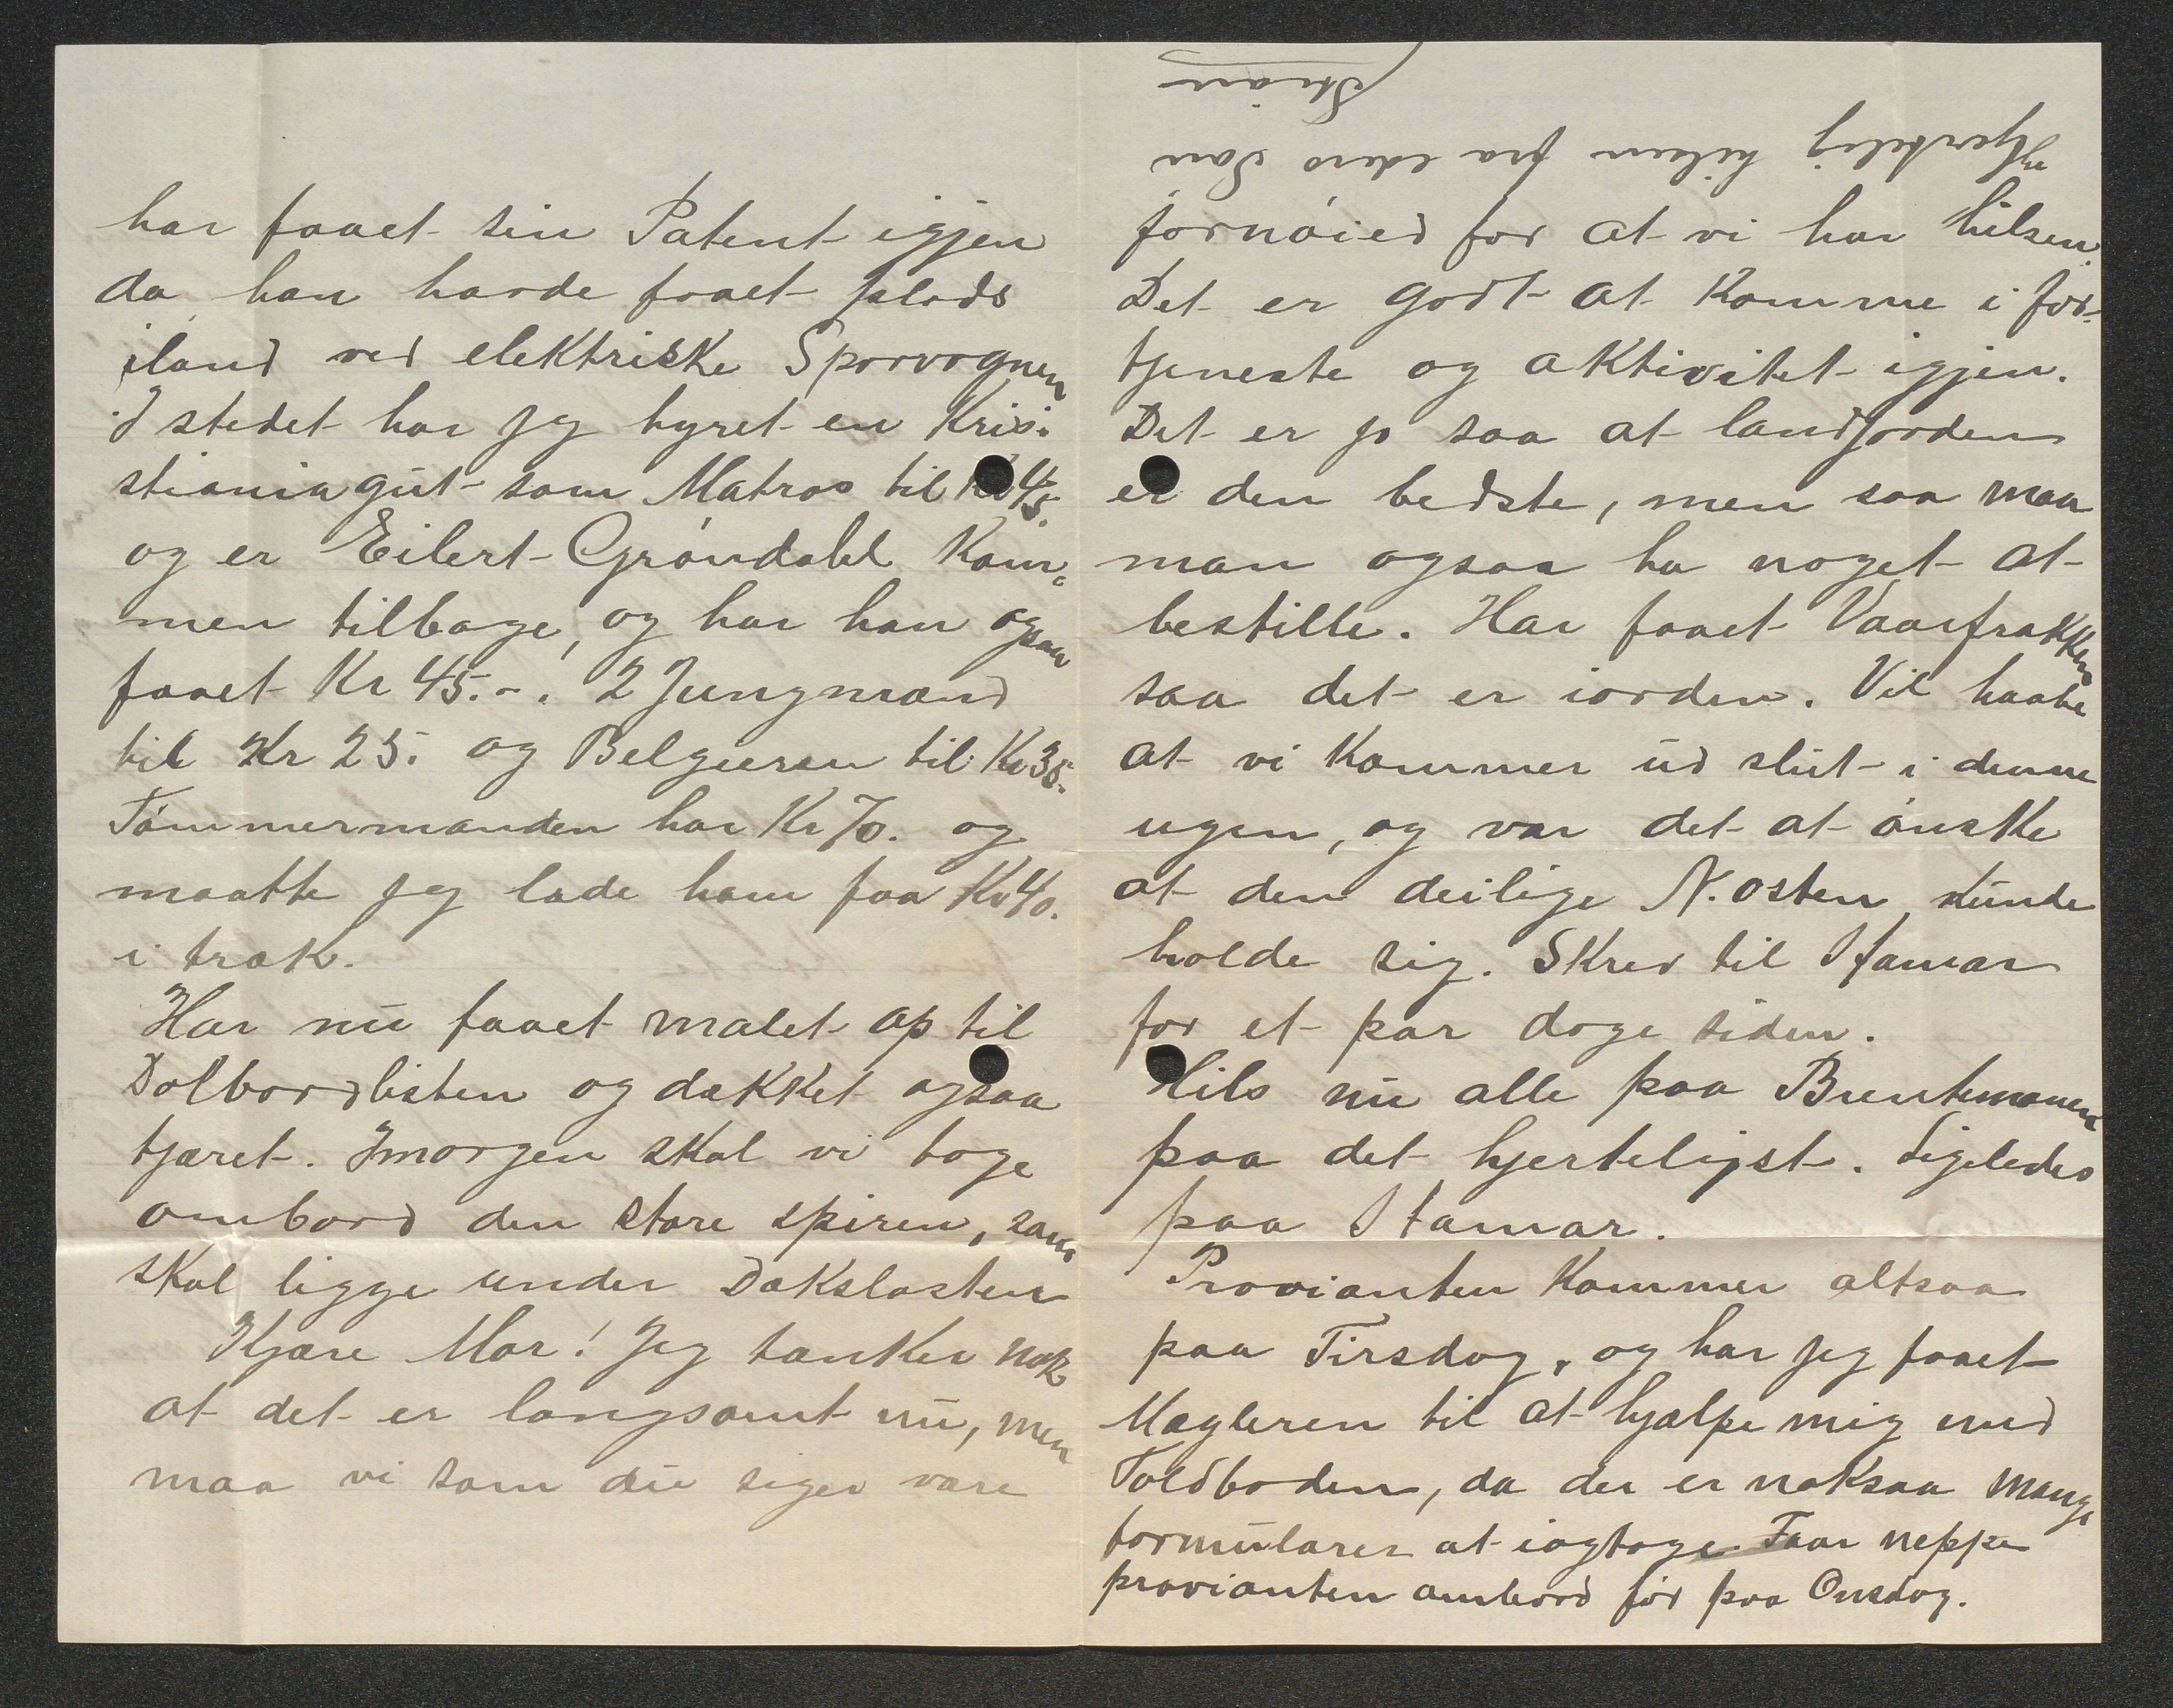 har faaet sin Patent igjen
da han havde faaet plads
iland ved elektriske Sporvognen
I stedet har jeg hyret en Kris-
stiania gut som Matros til Kr 45.
og er Eilert Grøndahl Kom-
men tilbage, og har han ogsaa
faaet Kr 45.-. 2 Jungmænd
til Kr 25. og Belgieren til Kr 35.
Tømmermanden har Kr 70. og
maatte jeg lade ham faa Kr 40.
i træk.
Har nu faaet malet op til
Dolbordlisten og dækket ogsaa
tjæret. Imorgen skal vi tage
ombord den store spiren, som
skal ligge under Dækslasten
Kjære Mor! Jeg tænker nok
at det er langsomt nu, men
maa vi som du siger være
fornøied for at vi har hilsen.
Det er godt at komme i for-
tjeneste og aktivitet igjen.
Det er jo saa at landjorden
er den bedste, men saa maa
man ogsaa ha noget at
bestille. Har faaet Vaarfrakken
saa det er iorden. Vil haabe
at vi kommer ud slut i denne
ugen, og var det at ønske
at den deilige N.osten kunde
holde sig. Skrev til Stamar
for et par dage siden.
Hils nu alle paa
paa det hjerteligst. Ligeledes
paa Stamar.
Provianten kommer altsaa
paa Tirsdag, og har jeg faaet
Mægleren til at hjælpe mig med
Toldboden, da der er noksaa mange
formularer at iagtage. Faar neppe
provianten ombord før paa Onsdag.
Hjertelig hilsen fra eders Søn